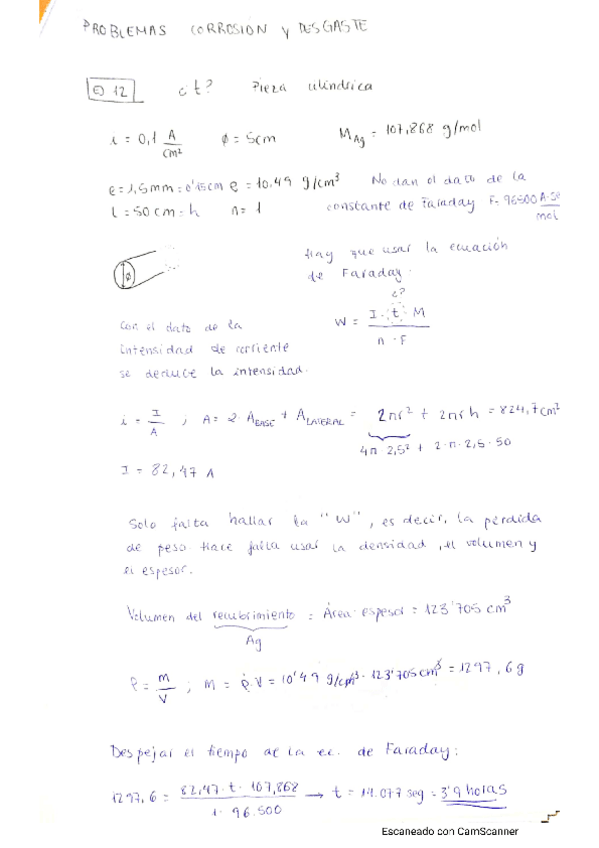 PROBLEMAS CORROSIÓN y DESGASTE
Ej 12 ¿t? Pieza cilíndrica
i = 0,1 A/cm² ϕ = 5cm M_Ag = 107,868 g/mol
e = 1,5mm = 0'15cm ρ = 10.49 g/cm³ No dan el dato de la
L = 50 cm = h n = 1 constante de Faraday F = 96500 A·se/mol
ϕ
Hay que usar la ecuación
de Faraday.
¿?
W = I · t · M / n · F
Con el dato de la
intensidad de corriente
se deduce la intensidad.
i = I/A ; A = 2 A_BASE + A_LATERAL = 2πr² + 2πrh = 824,7cm²
4π 2,5² + 2·π·2,5·50
I = 82,47 A
Solo falta hallar la "W", es decir, la pérdida
de peso Hace falta usar la densidad, el volumen y
el espesor.
Volumen del recubrimiento = Área · espesor = 123'705 cm³
Ag
ρ = m/V ; m = ρ·V = 10'49 g/cm³ · 123'705 cm³ = 1297,6 g
Despejar el tiempo de la ec. de Faraday:
1297,6 = 82,47 · t · 107,868 / 1 · 96.500 → t = 14.077 seg = 3'9 horas
Escaneado con CamScanner